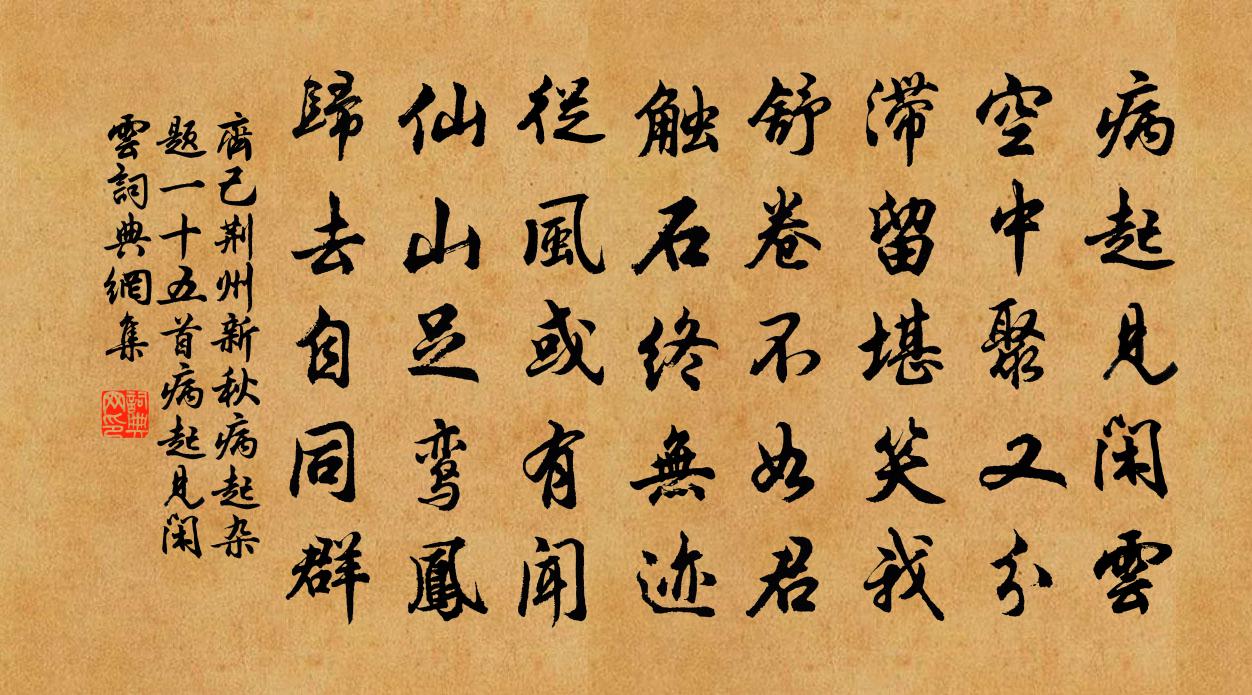 病起見闲雲
空中聚又分
滞留堪笑我
舒卷不如君
触石终無迹
從風或有聞
仙山足鸾鳳
歸去自同群
齊己荆州新秋病起杂
题一十五首病起見闲
雲詞典網集
詞典网印